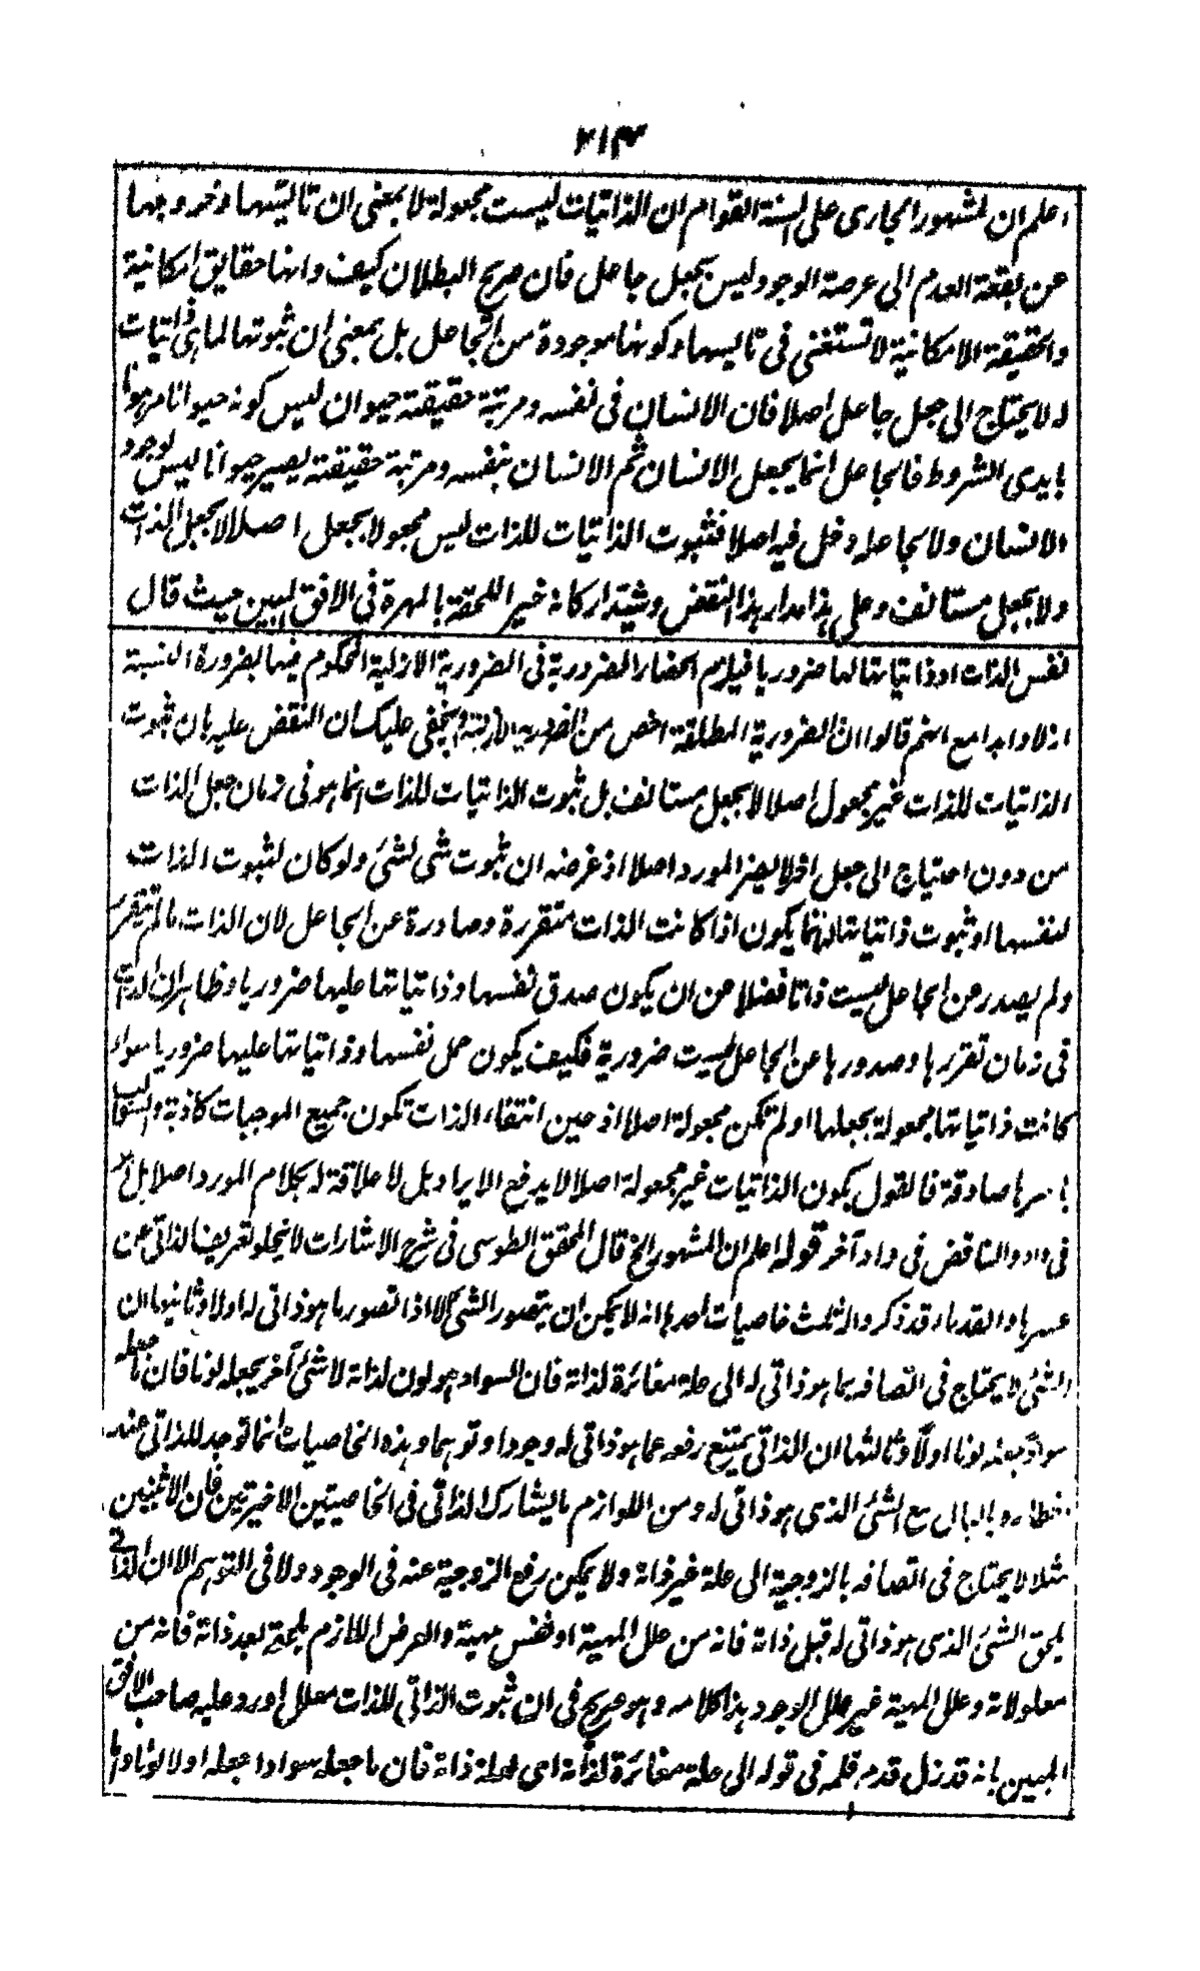 ٢١٣
اعلم ان المشهور الجارى على السنة القوام ان الذاتيات ليست مجعولة لا بمعنى ان تاليتها وخروجها
عن بقعة العدم الى عرصة الوجود ليس بجعل جاعل فان صريح البطلان كيف وانها حقايق امكانية
والحقيقة الامكانية لا تستغنى فى تاليسها وكونها موجودة من الجاعل بل بمعنى ان ثبوتها لما هى ذاتيات
له لا يحتاج الى جعل جاعل اصلا فان الانسان فى نفسه ومرتبة حقيقته حيوان ليس كونه حيوانا مرهونا
بايدى الشروط فالجاعل انما يجعل الانسان ثم الانسان بنفسه ومرتبة حقيقته يصير حيوانا ليس لوجود
الانسان ولا لجاعله دخل فيه اصلا فثبوت الذاتيات للذات ليس مجعولا بجعل اصلا لا بجعل الذات
ولا بجعل مستانف وعلى هذا مدار هذا النقض وشيد اركانه خير اللحقة بالمهرة فى الافق المبين حيث قال
نفس الذات او ذاتياتها لها ضروريا فيلزم انحصار الضرورية فى الضرورية الازلية المحكوم فيها بضرورة النسبة
ازلا وابدا مع انهم قالوا ان الضرورية المطلقة اخص من الضرورية الازلية ولا يخفى عليك ان النقض عليه بان ثبوت
الذاتيات للذات غير مجعول اصلا لا بجعل مستانف بل ثبوت الذاتيات للذات انما هو فى زمان جعل الذات
من دون احتياج الى جعل اخر لا يضر المورد اصلا اذ غرضه ان ثبوت شى لشئ ولو كان لثبوت الذات
لنفسها او ثبوت ذاتياتها لها انما يكون اذا كانت الذات متقررة وصادرة عن الجاعل لان الذات ما لم تتقرر
ولم يصدر عن الجاعل ليست ذاتا فضلا عن ان يكون صدق نفسها وذاتياتها عليها ضروريا وظاهر ان الذات
فى زمان تقررها وصدورها عن الجاعل ليست ضرورية فكيف يكون حمل نفسها وذاتياتها عليها ضروريا سواء
كانت ذاتياتها مجعولة بجعلها او لم تكن مجعولة اصلا اذ حين انتفاء الذات تكون جميع الموجبات كاذبة والسوالب
باسرها صادقة فالقول بكون الذاتيات غير مجعولة اصلا لا يدفع الايراد بل لا علاقة له بكلام المورد اصلا بل هو
فى واد والناقض فى واد آخر قوله اعلم ان المشهور الخ قال المحقق الطوسى فى شرح الاشارات لا نجد لو تعريف الذاتى عن
عسر ما والقدماء قد ذكروا له ثلث خاصيات احدها انه لا يمكن ان يتصور الشئ الا اذا تصور ما هو ذاتى له اولا وثانيها ان
الشئ لا يحتاج فى اتصافه بما هو ذاتى له الى علة مغائرة لذاته فان السواد هو لون لذاته لا شئ آخر يجعله لونا فان ما جعله
سوادا جعله لونا اولا وثالثها ان الذاتى يمتنع رفعه عما هو ذاتى له وجودا وتوهما وهذه الخاصيات انما توجد للذاتى عند
اخطاره بالبال مع الشئ الذى هو ذاتى له ومن اللوازم ما يشارك الذاتى فى الخاصيتين الاخيرتين فان الاثنين
مثلا لا يحتاج فى اتصافه بالزوجية الى علة غير ذاته ولا يمكن رفع الزوجية عنه فى الوجود ولا فى التوهم الا ان الذاتى
يلحق الشئ الذى هو ذاتى له قبل ذاته فانه من علل المهية او نفس مهية والعرض اللازم يلحقه بعد ذاته فانه من
معلولاته وعلل المهية غير علل الوجود هذا كلامه وهو صريح فى ان ثبوت الذاتى للذات معلل اورد عليه صاحب الافق
المبين بانه قد زل قدم قلمه فى قوله الى علة مغائرة لذاته اى لعلة ذاته فان ما جعله سوادا جعله اولا لونا واما